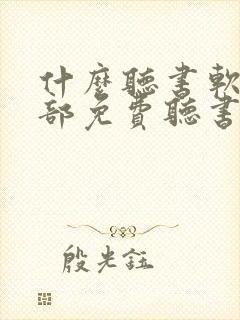 什麼聽書軟
部免費聽書
殷光鈺